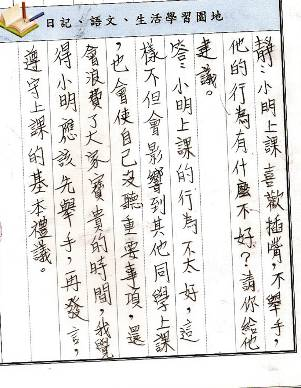 日記、語文、生活學習園地
靜:小明上課喜歡插嘴,不舉手,
他的行為有什麼不好?請你給他
建議。
小明上課的行為不太好,這
樣不但會影響到其他同學上課
,也會使自己沒聽重要事項,還
會浪費了大家寶貴的時間,我覺
得小明應該先舉手,再發言,
遵守上課的基本禮議。